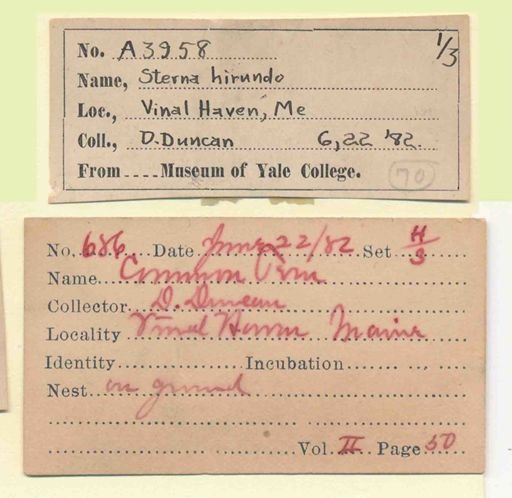 No. A3958 1/3
Name, Sterna hirundo
Loc., Vinal Haven, Me
Coll., D. Duncan 6,22 '82.
From .... Museum of Yale College.
70
No. 686 Date June 22/82 Set 4/3
Name Common Tern
Collector D. Duncan
Locality Vinal Haven Maine
Identity Incubation
Nest on ground
Vol. II Page 50